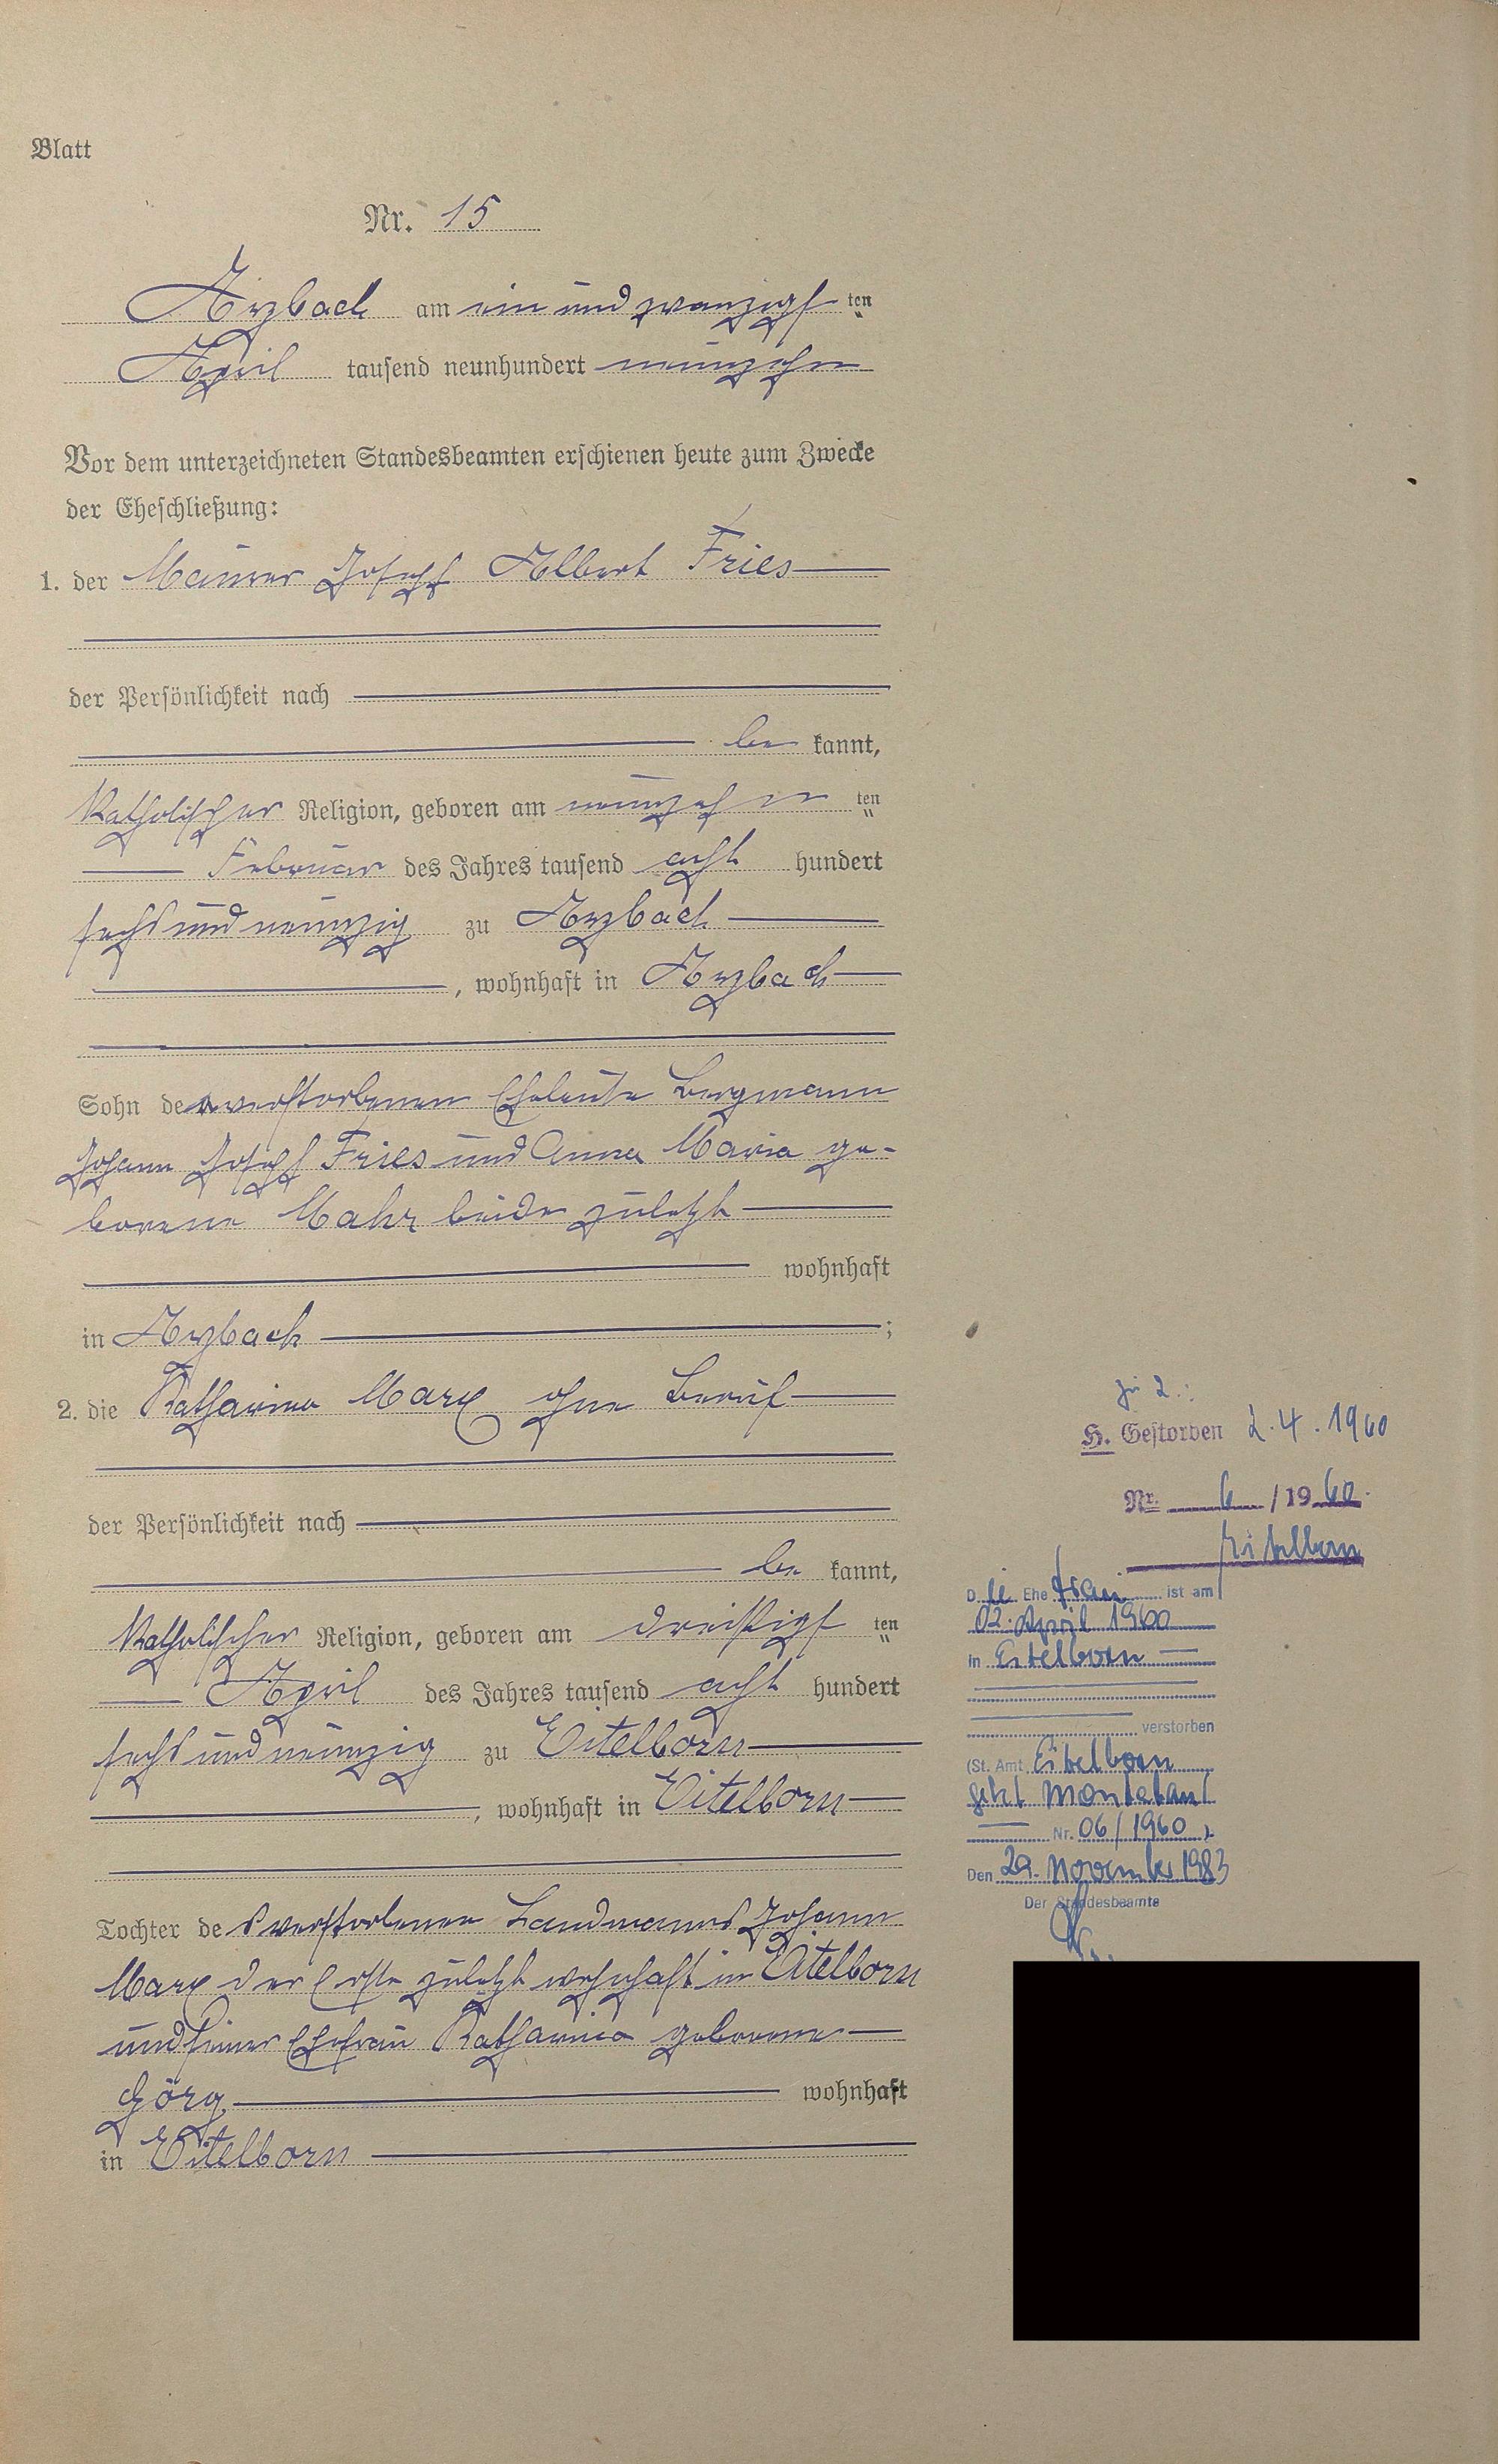 Blatt
Nr. 15
Arzbach am ein und zwanzigst ten
April tausend neunhundert neunzehn
Vor dem unterzeichneten Standesbeamten erschienen heute zum Zwecke
der Eheschließung:
1. der Maurer Joseph Albert Fries
der Persönlichkeit nach
be kannt,
katholischer Religion, geboren am neunzehn ten
Februar des Jahres tausend acht hundert
sechs und neunzig zu Arzbach
, wohnhaft in Arzbach
Sohn der verstorbenen Eheleute Bergmann
Johann Joseph Fries und Anna Maria ge-
borene Mahr beide zuletzt
wohnhaft
in Arzbach ;
2. die Katharina Marx ohne Beruf
der Persönlichkeit nach
be kannt,
katholischer Religion, geboren am dreißigst ten
April des Jahres tausend acht hundert
sechs und neunzig zu Eitelborn
, wohnhaft in Eitelborn
Tochter des verstorbenen Landmanns Johann
Marx der Erste zuletzt wohnhaft in Eitelborn
und seiner Ehefrau Katharina geborene
Görg wohnhaft
in Eitelborn
zu 2.:
H. Gestorben 2.4.1960
Nr. 6 / 1960.
Eitelborn
Die Ehefrau ist am
02. April 1960
in Eitelborn
verstorben
(St. Amt Eitelborn
jetzt Montabaur
Nr. 06/1960 ).
Den 29. November 1983
Der Standesbeamte